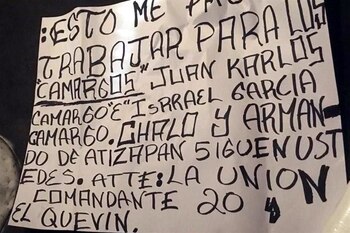 :ESTO ME PA
TRABAJAR PARA LOS
"CAMARGOS" JUAN KARLOS
CAMARGO "E" ISRRAEL GARCIA
CAMARGO. CHALO Y ARMAN-
DO DE ATIZAPAN SIGUEN UST
EDES. ATTE: LA UNION
COMANDANTE 20 Y
EL QUEVIN.